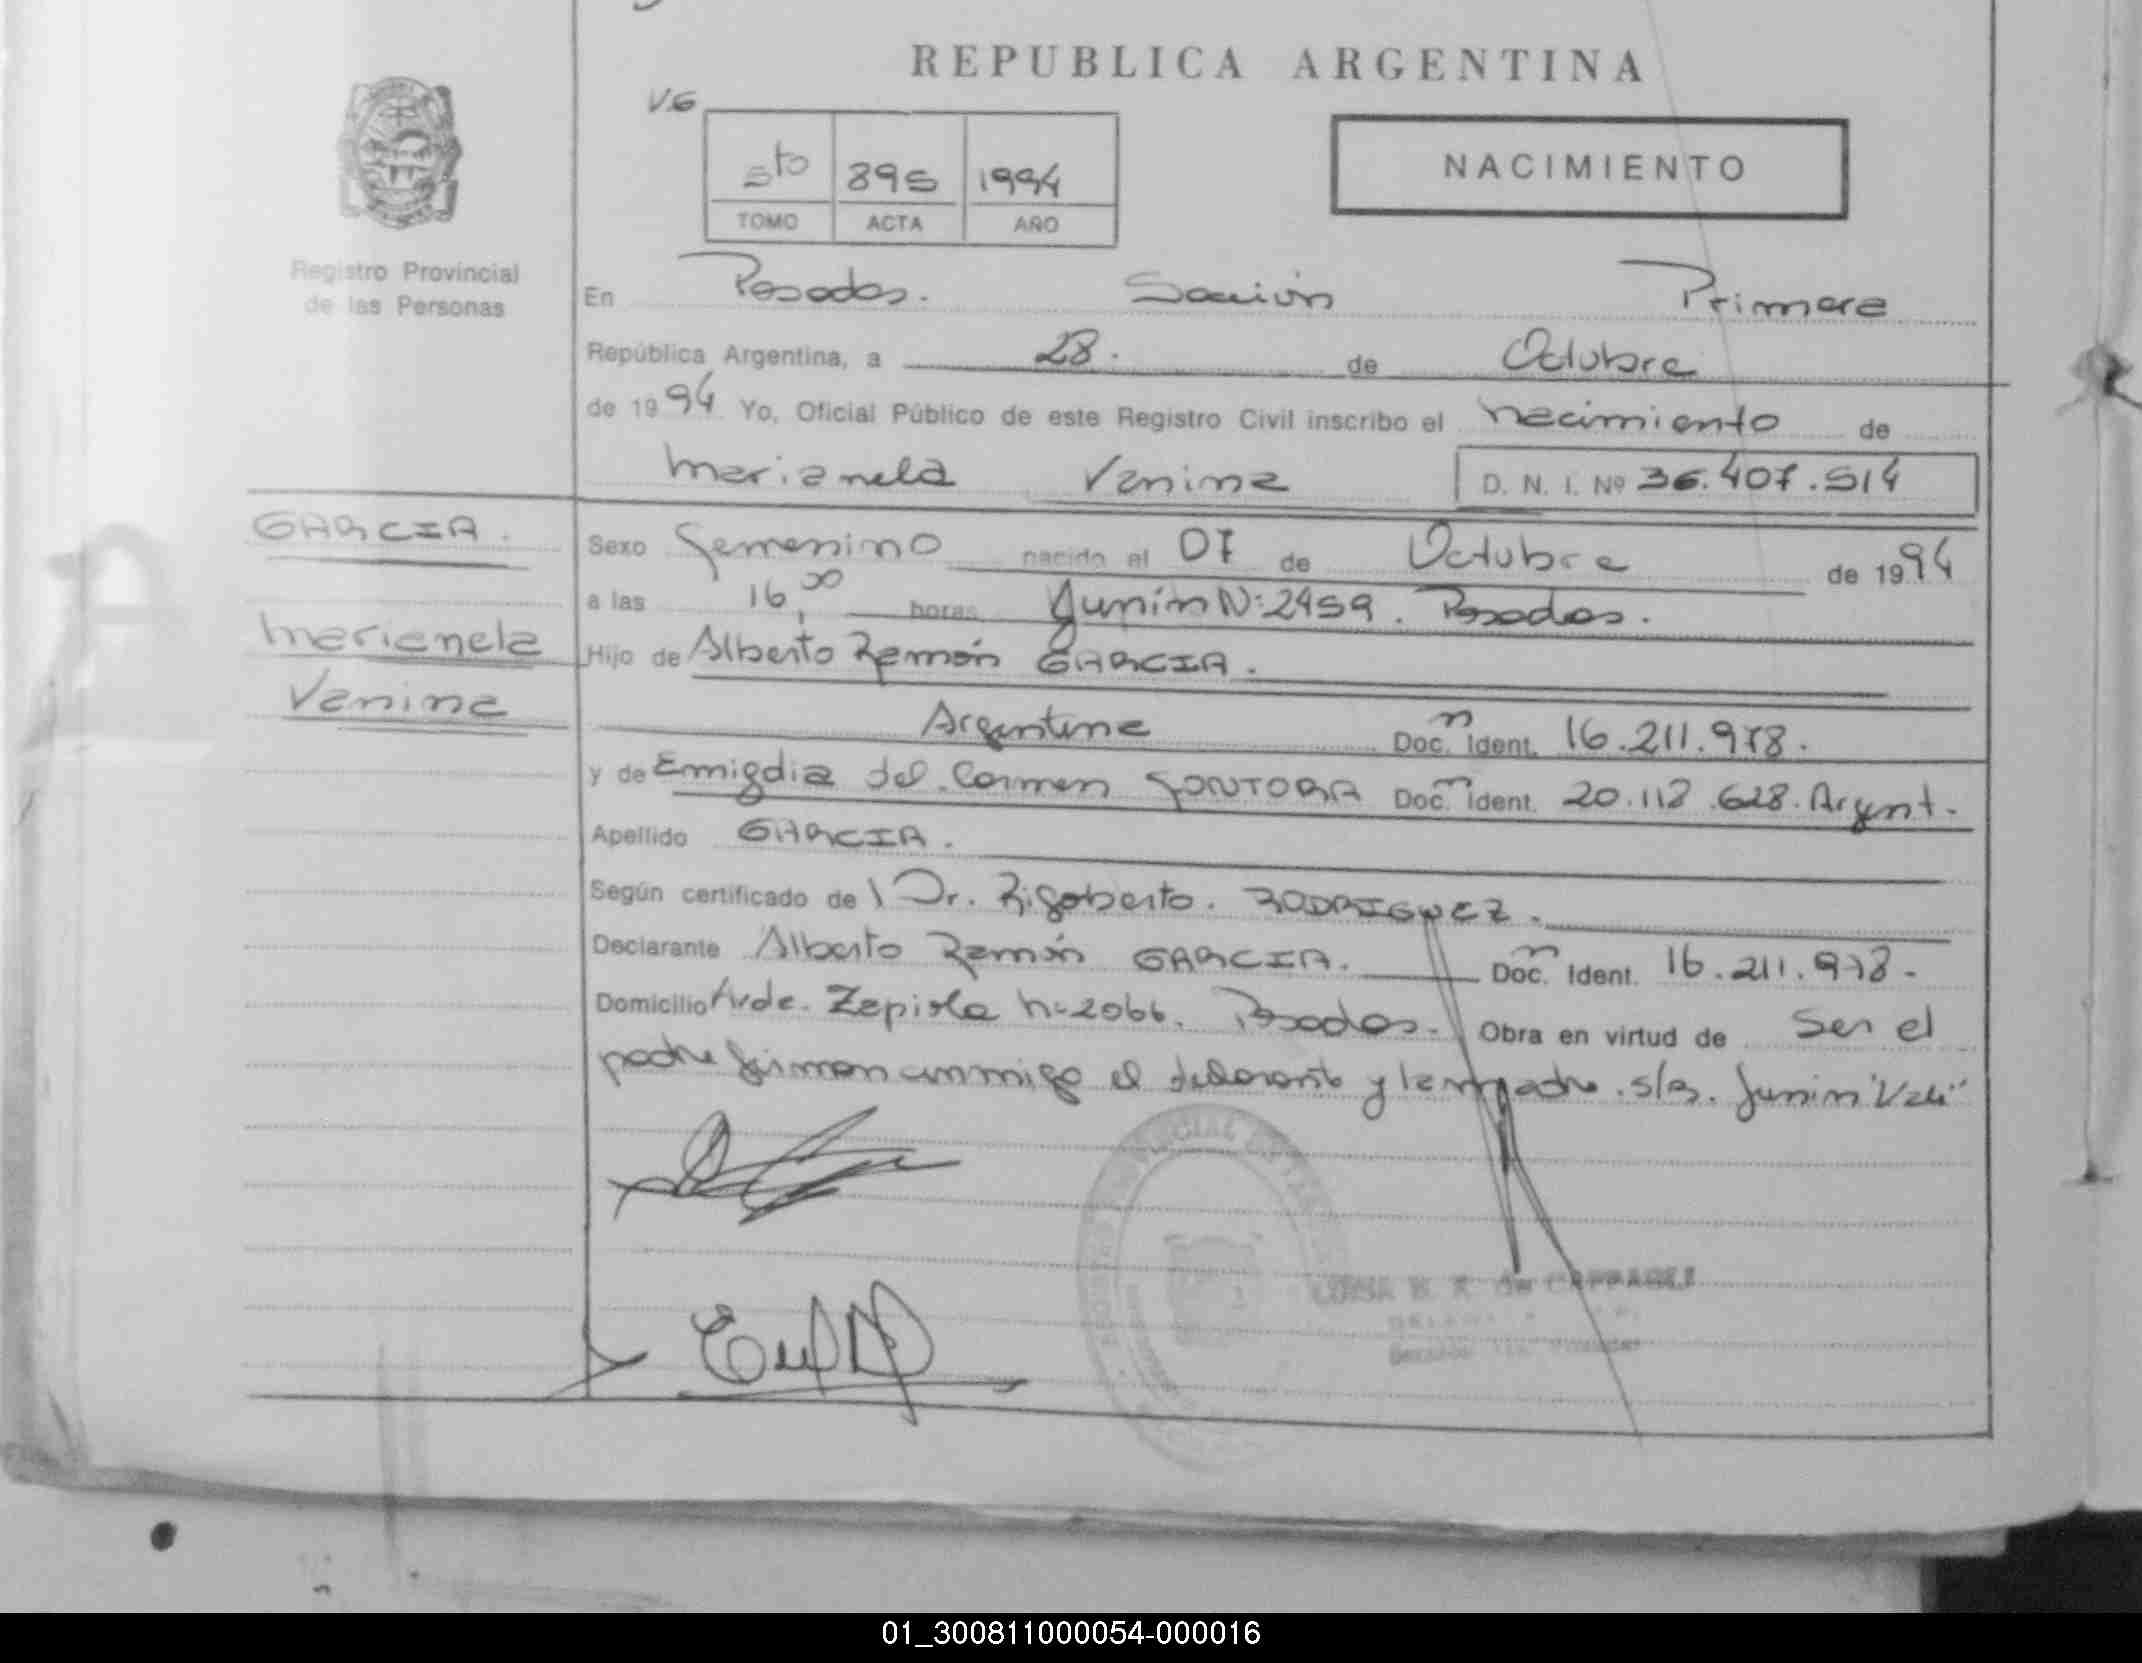 REPUBLICA ARGENTINA
V.G
5to 895 1994
TOMO ACTA AÑO
NACIMIENTO
Registro Provincial
de las Personas
En Posadas. Sección Primera
República Argentina, a 28. de Octubre
de 1994 Yo, Oficial Público de este Registro Civil inscribo el nacimiento de
Marianela Vanina D. N. I. Nº 36.407.514
GARCIA.
Marianela
Vanina
Sexo femenino nacido el 07 de Octubre de 1994
a las 16,00 horas Junín N:2459. Posadas.
Hijo de Alberto Ramón GARCIA.
Argentina Doc. Ident. 16.211.978.
y de Emigdia del Carmen Doc. Ident. 20.118.628. Argent.
Apellido GARCIA.
Según certificado de l Dr. Rigoberto. RODRIGUEZ.
Declarante Alberto Ramón GARCIA. Doc. Ident. 16.211.978.
Domicilio Avda. Zapiola n:2066. Posadas. Obra en virtud de Ser el
padre firman conmigo el declarante y la madre. s/r. Junín "Vale"
de
01_300811000054-000016